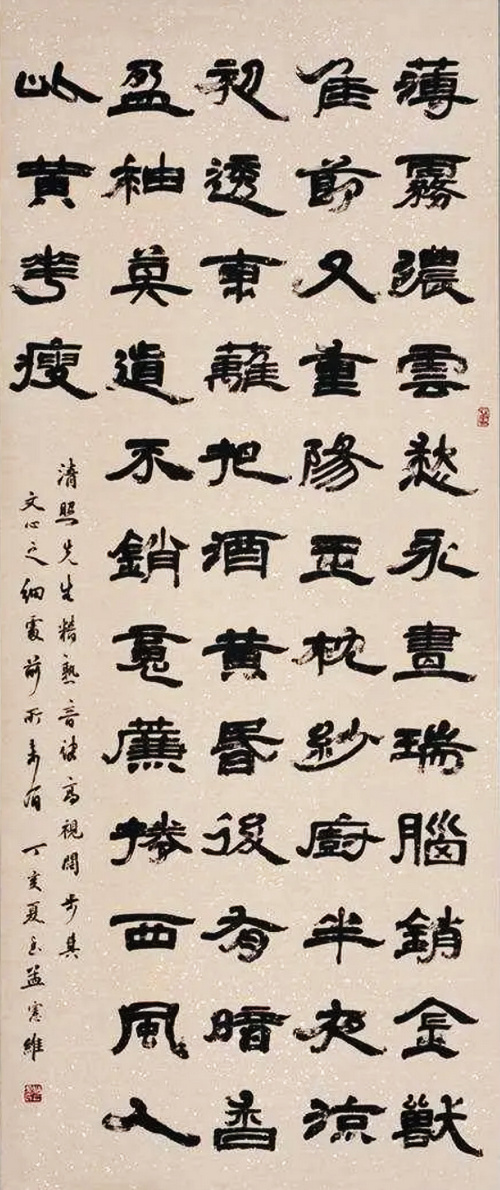 薄霧濃雲愁永晝瑞腦銷金獸
佳節又重陽玉枕紗廚半夜涼
初透東籬把酒黃昏後有暗香
盈袖莫道不銷魂簾捲西風人
以黃花瘦
清照先生精熟音律高視闊步其
文心之細前所未有 丁亥夏孟憲維